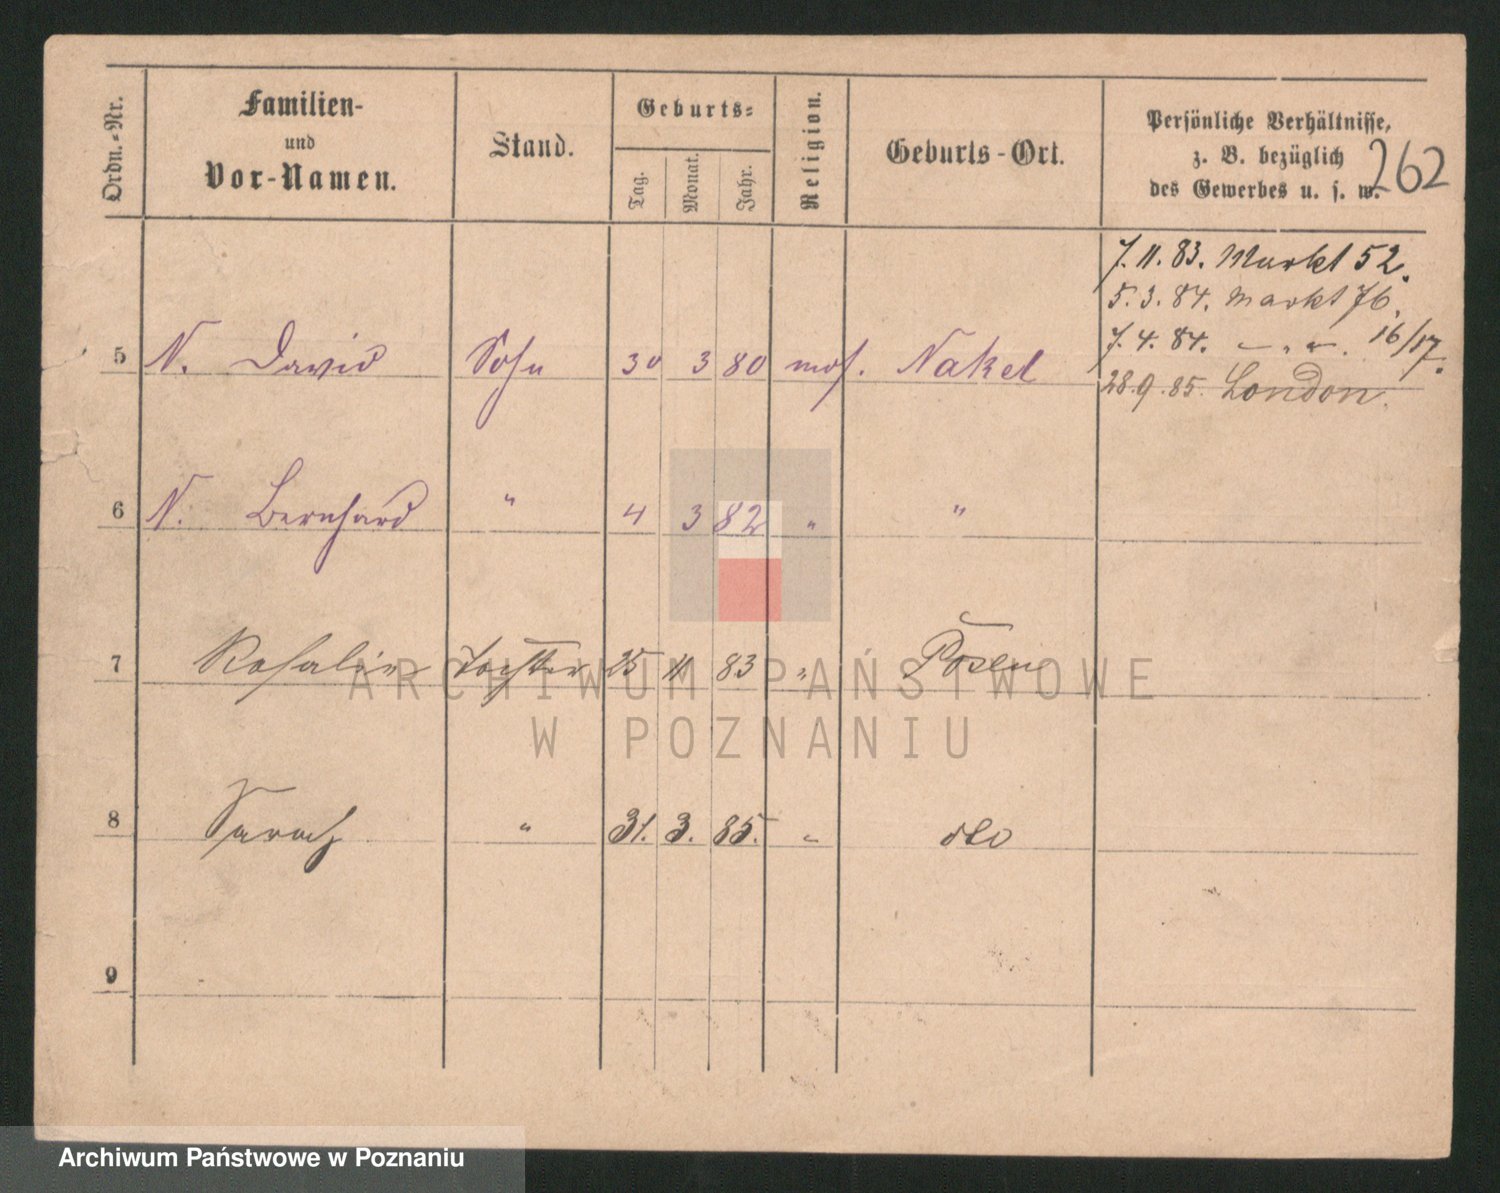 Ordn.-Nr.
Familien-
und
Vor-Namen.
Stand.
Geburts-
Tag.
Monat.
Jahr.
Religion.
Geburts-Ort.
Persönliche Verhältnisse,
z. B. bezüglich
des Gewerbes u. s. w.
262
7. 11. 83. Markt 52.
5. 3. 84. Markt 76.
7. 4. 84. 16/17.
28. 9. 85. London.
5 N. David Sohn 30 3 80 mos. Nakel
6 N. Bernhard " 4 3 82 " "
7 Rosalie Tochter 25 11 83 " Posen
8 Sarah " 31. 3. 85. " dto
9
ARCHIWUM PAŃSTWOWE
W POZNANIU
Archiwum Państwowe w Poznaniu